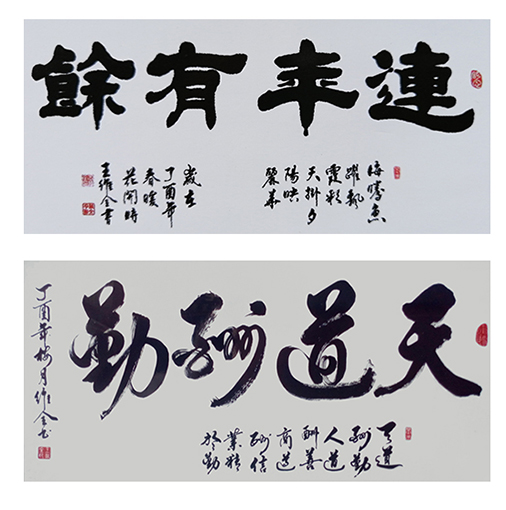 連年有餘
海騰魚
躍
霞彩
天掛夕
陽映
歲在
丁酉年
春暖
花開時
王維全書
天道酬勤
天道
酬勤
人道
酬善
商道
酬信
業精
於勤
丁酉年梅月維全書